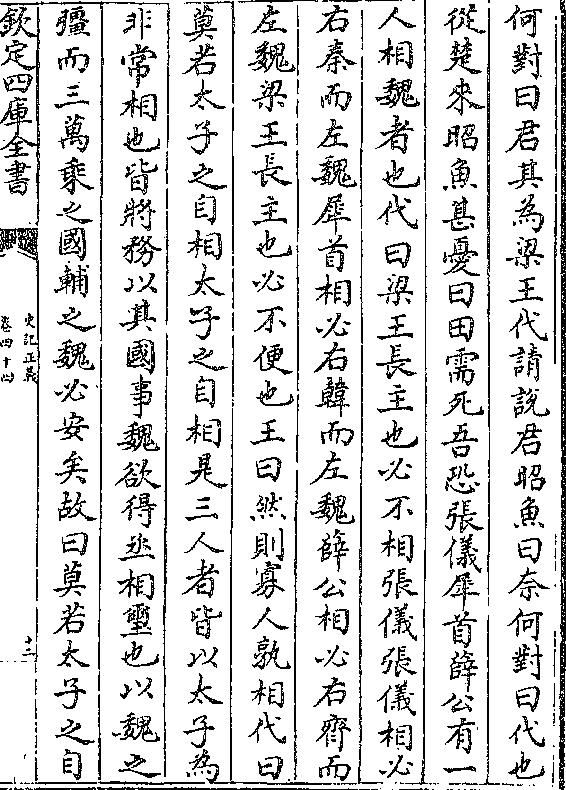 何對曰君其為梁王代請說君昭魚曰奈何對曰代也
從楚來昭魚甚憂曰田需死吾恐張儀犀首薛公有一
人相魏者也代曰梁王長主也必不相張儀張儀相必
右秦而左魏犀首相必右韓而左魏薛公相必右齊而
左魏梁王長主也必不便也王曰然則寡人孰相代曰
莫若太子之自相太子之自相是三人者皆以太子為
非常相也皆將務以其國事魏欲得丞相璽也以魏之
彊而三萬乘之國輔之魏必安矣故曰莫若太子之自
欽定四庫全書
史記正義
卷四十四
十二